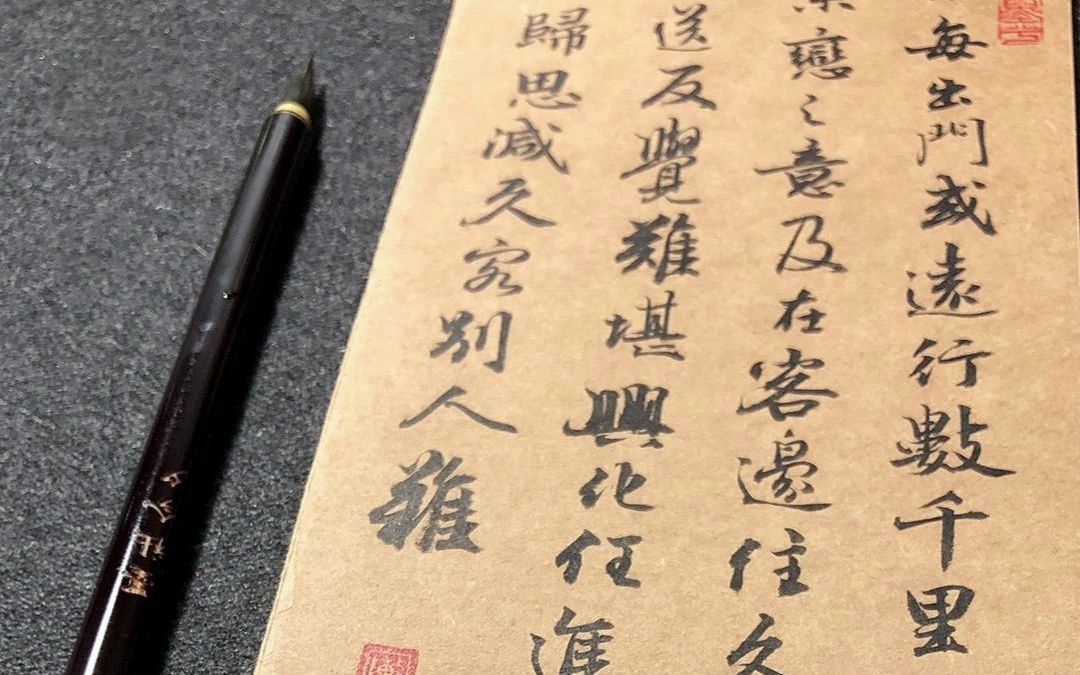 每出門或遠行數千里
戀之意及在客邊住久
送反覺難堪興化任進
歸思減久客別人難